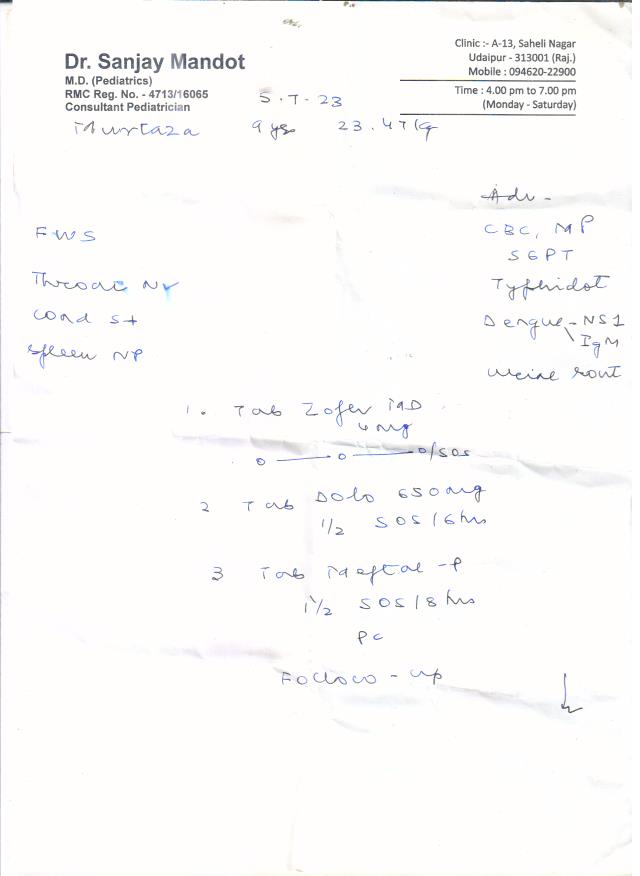 Dr. Sanjay Mandot
M.D. (Pediatrics)
RMC Reg. No. - 4713/16065
Consultant Pediatrician
Clinic :- A-13, Saheli Nagar
Udaipur - 313001 (Raj.)
Mobile : 094620-22900
Time : 4.00 pm to 7.00 pm
(Monday - Saturday)
5.7.23
Murtaza 9 yrs 23.47 kg
Adv -
FWS
CBC, MP
SGPT
Throat
Typhidot
Cond S+
Dengue - NS1
IgM
Spleen NP
Urine rout
1. Tab Zofer MD
4 mg
0 — 0 — 0/SOS
2 Tab Dolo 650 mg
1/2 SOS/6 hrs
3 Tab Meftal-P
1 1/2 SOS/8 hrs
PC
Follow-up